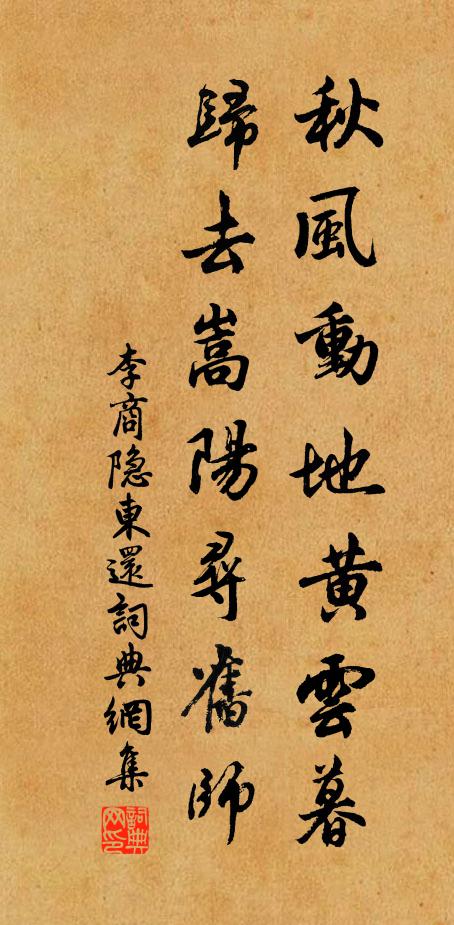 秋風動地黄雲暮
歸去嵩陽尋舊師
李商隐東還詞典網集
詞典网印